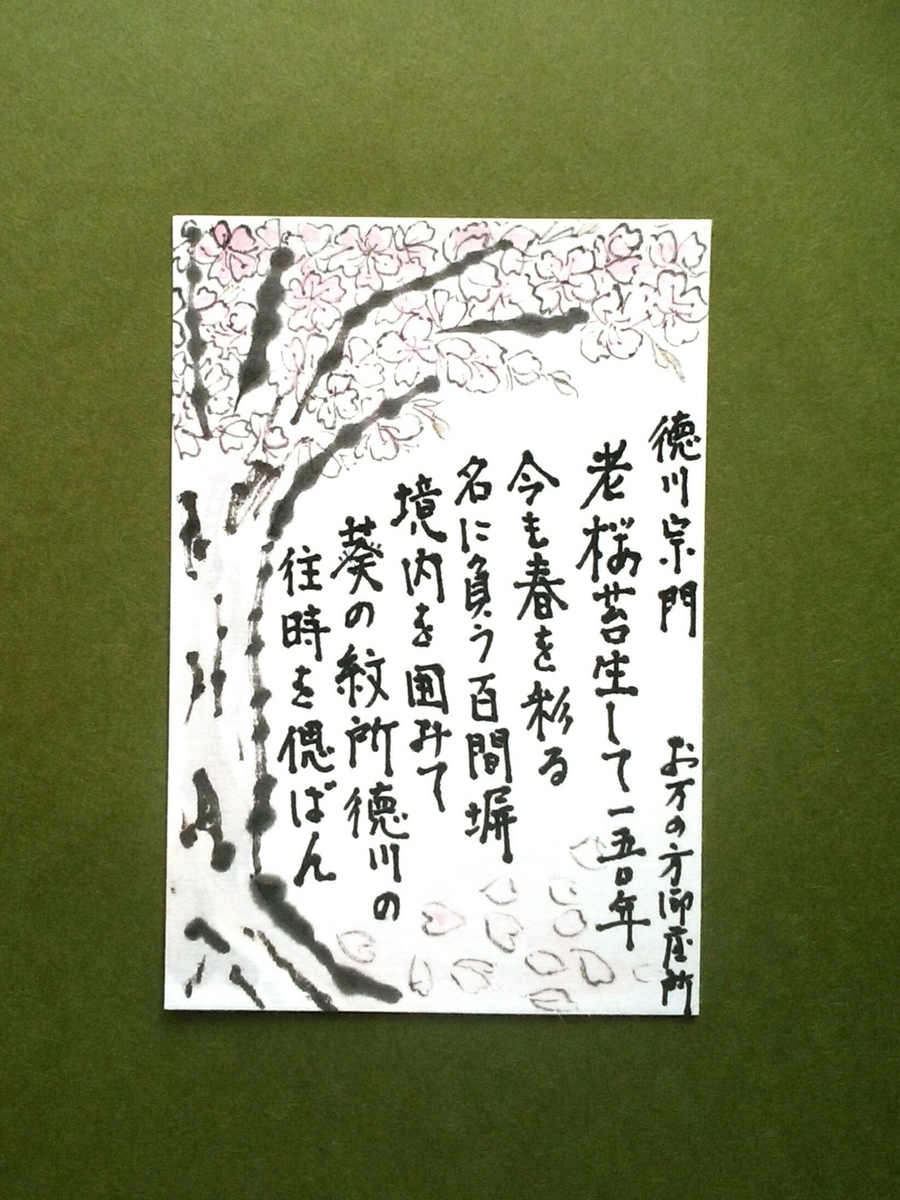 徳川宗門　お万の方御座所
老桜苔生して一五〇年
今も春を彩る
名に負う百間塀
境内を囲みて
葵の紋所徳川の
往時を偲ばん